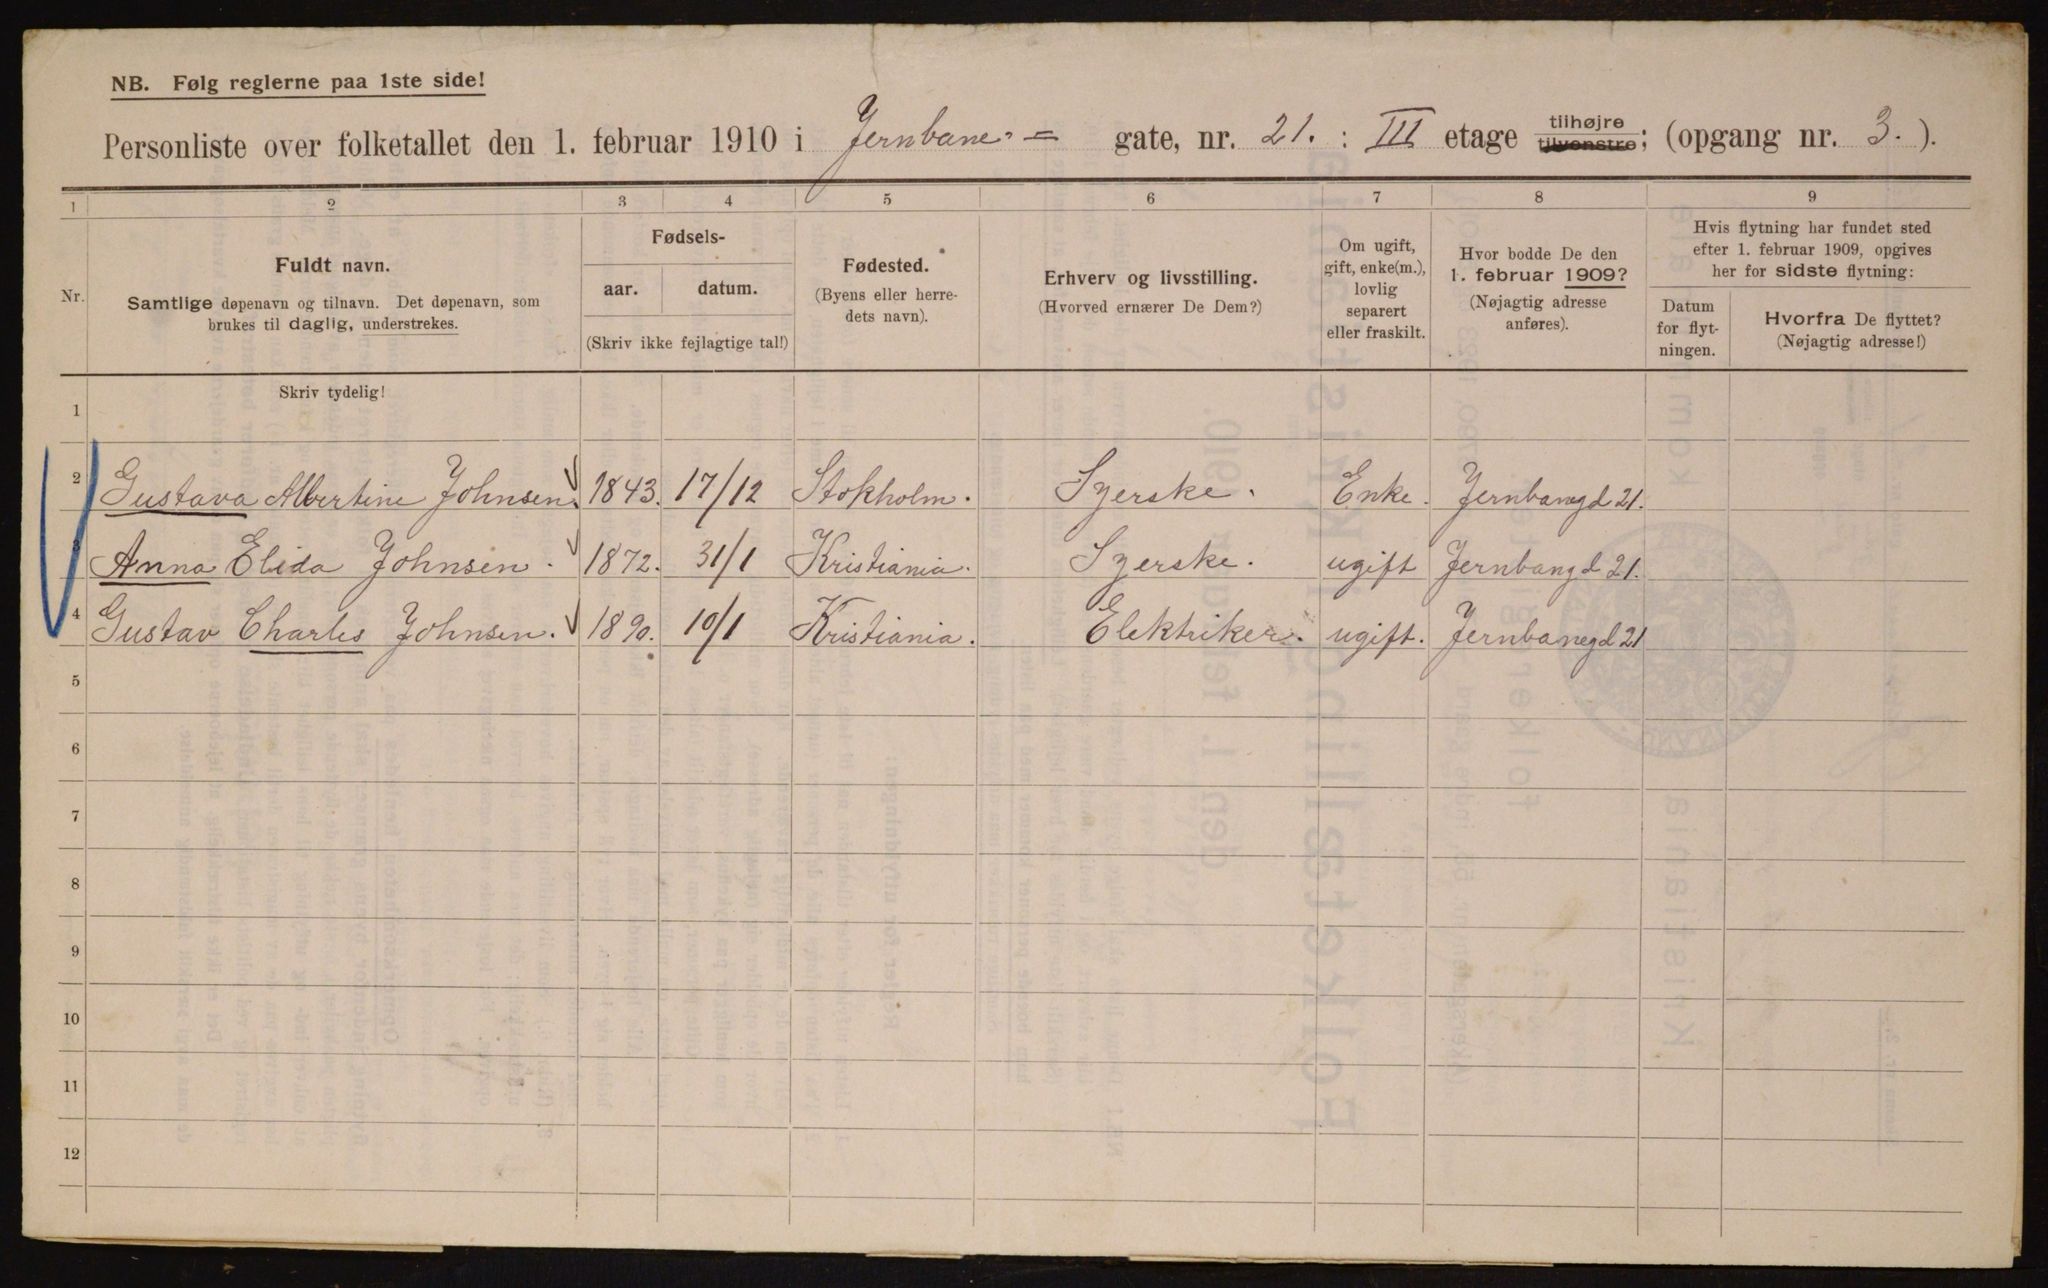 NB. Følg reglerne paa 1ste side!
Personliste over folketallet den 1. februar 1910 i Jernbane- gate, nr. 21. : III etage tilhøjre tilvenstre; (opgang nr. 3.).
1 2 3 4 5 6 7 8 9
Nr.
Fuldt navn.
Samtlige døpenavn og tilnavn. Det døpenavn, som
brukes til daglig, understrekes.
Fødsels-
aar. datum.
(Skriv ikke fejlagtige tal!)
Fødested.
(Byens eller herre-
dets navn).
Erhverv og livsstilling.
(Hvorved ernærer De Dem?)
Om ugift,
gift, enke(m.),
lovlig
separert
eller fraskilt.
Hvor bodde De den
1. februar 1909?
(Nøjagtig adresse
anføres).
Hvis flytning har fundet sted
efter 1. februar 1909, opgives
her for sidste flytning:
Datum
for flyt-
ningen.
Hvorfra De flyttet?
(Nøjagtig adresse!)
Skriv tydelig!
1
2 Gustava Albertine Johnsen. 1843. 17/12 Stokholm. Syerske. Enke. Jernbanegd 21.
3 Anna Elida Johnsen. 1872. 31/1 Kristiania. Syerske. ugift Jernbangd 21.
4 Gustav Charles Johnsen. 1890. 10/1 Kristiania. Elektriker. ugift. Jernbanegd 21
5
6
7
8
9
10
11
12